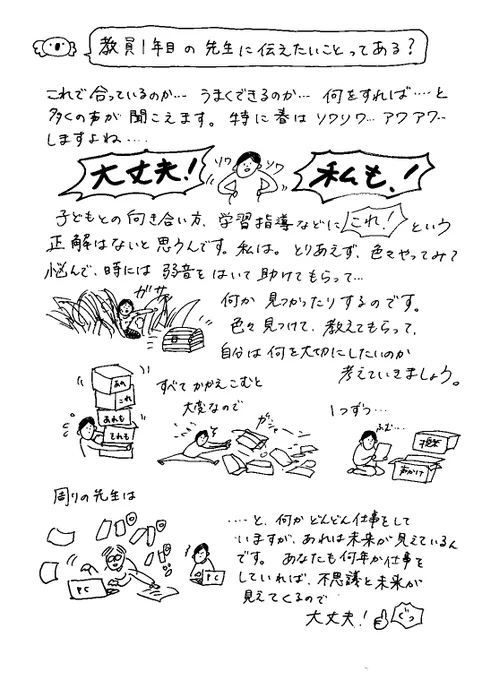 教員1年目の先生に伝えたいことってある?
これで合っているのか… うまくできるのか… 何をすれば…と
多くの声が聞こえます。特に春はソワソワ… アワアワ…
しますよね…
大丈夫! ソワ ソワ 私も!
子どもとの向き合い方、学習指導などに これ! という
正解はないと思うんです。私は。とりあえず、色々やってみて
悩んで、時には弱音をはいて助けてもらって…
ガサ
何か見つかったりするのです。
色々見つけて、教えてもらって、
自分は何を大切にしたいのか
考えていきましょう。
あれ
これ
あれも
それも
すべてかかえこむと
大変なので
ガシャ
1つずつ…
ふむ…
授業
声かけ
周りの先生は
PC
PC
…と、何かどんどん仕事をして
いますが、あれは未来が見えているん
です。あなたも何年か仕事を
していれば、不思議と未来が
見えてくるので
大丈夫! ぐっ